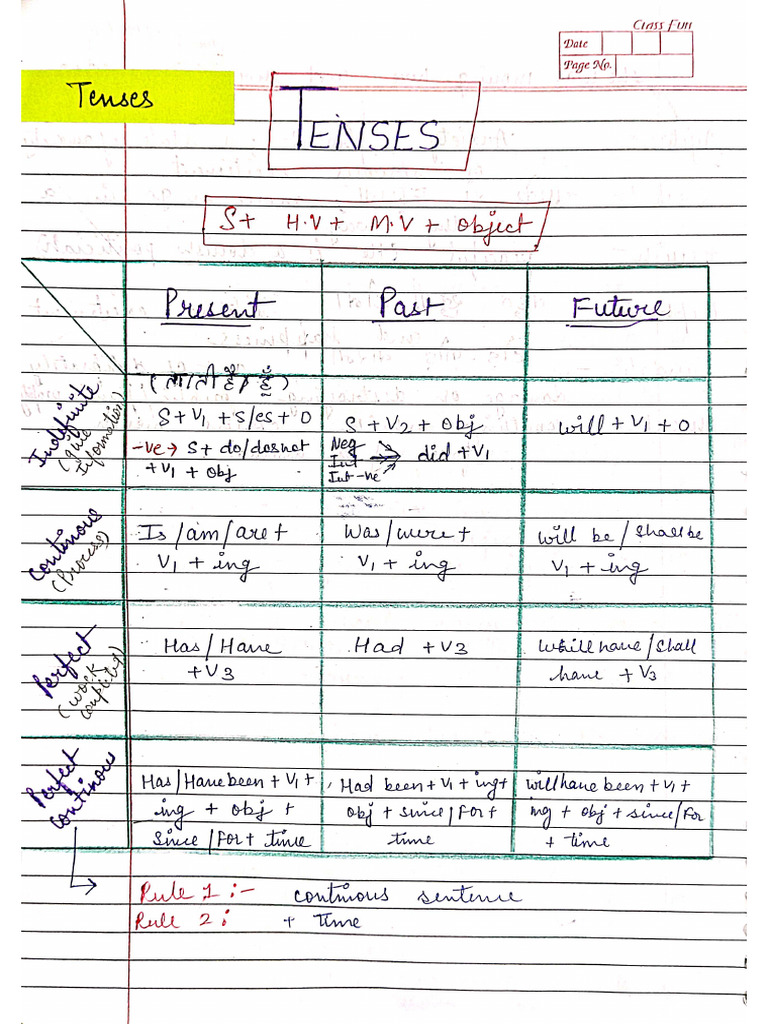 Class Fun
Date
Page No.
Tenses
TENSES
S+ H.V + M.V + object
Present Past Future
Indefinite
(give
Information)
(ता/ती है/ हूँ)
S+V1 + S/es + O
-ve → S + do/does not
+V1 + obj
S + V2 + obj
Neg
Int
Int -ve
did +V1
will + V1 + O
Continous
(Process)
Is /am /are +
V1 + ing
Was/were +
V1 + ing
will be / Shall be
V1 + ing
Perfect
(work
completed)
Has/Have
+V3
Had + V3
whill have / Shall
have + V3
Perfect
continous
Has/Have been + V1 +
ing + obj +
Since / For + time
Had been + V1 + ing +
obj + since / For +
time
will have been + V1 +
ing + obj + since/For
+ time
Rule 1 :- continous sentence
Rule 2 : + Time